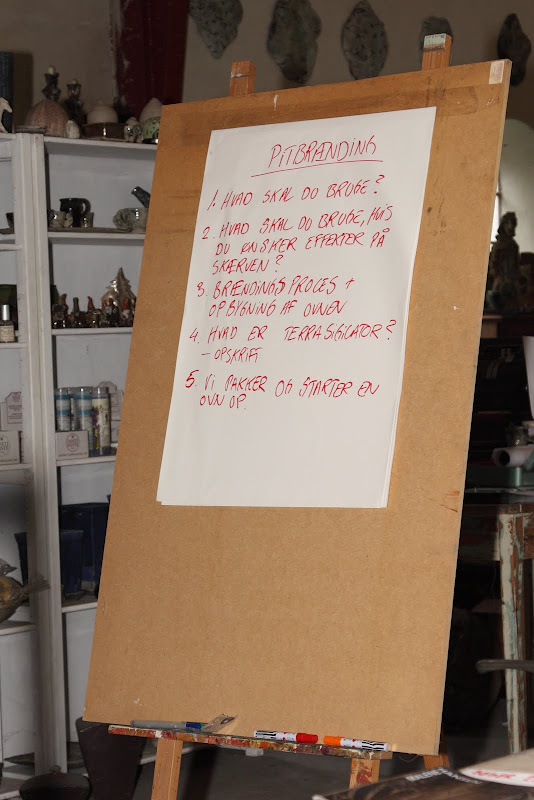 PITBRÆNDING
1. HVAD SKAL DU BRUGE?
2. HVAD SKAL DU BRUGE, HVIS
DU ØNSKER EFFEKTER PÅ
SKÆRVEN?
3. BRÆNDINGSPROCES +
OPBYGNING AF OVNEN
4. HVAD ER TERRASIGICATOR?
- OPSKRIFT
5. VI PAKKER OG STARTER EN
OVN OP.